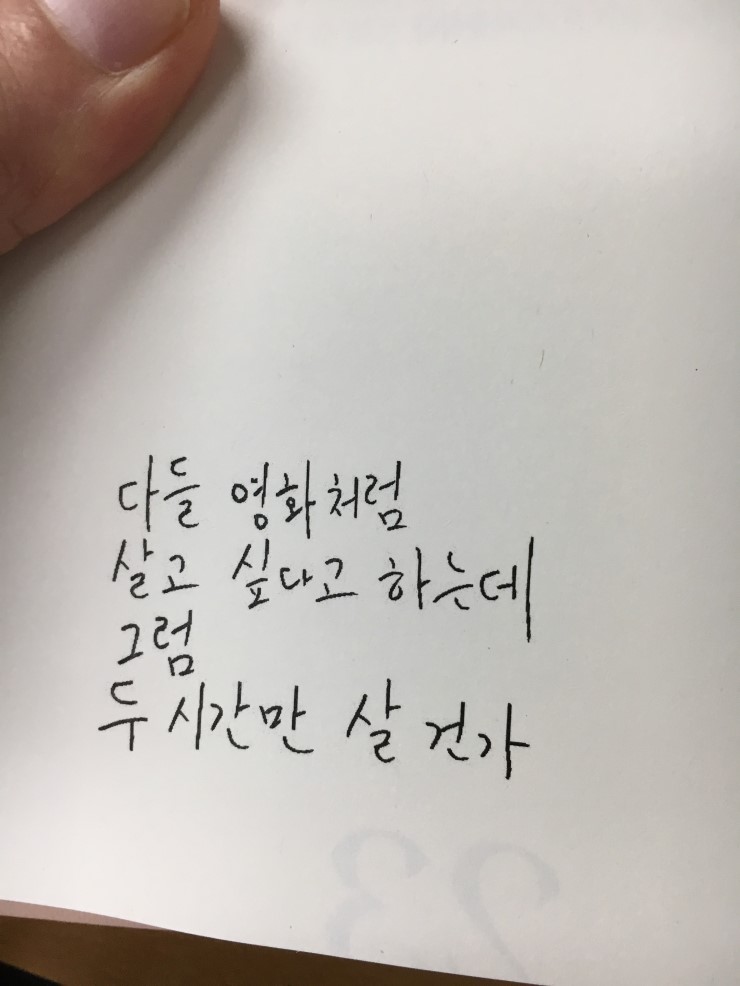 다들 영화처럼
살고 싶다고 하는데
그럼
두 시간만 살 건가